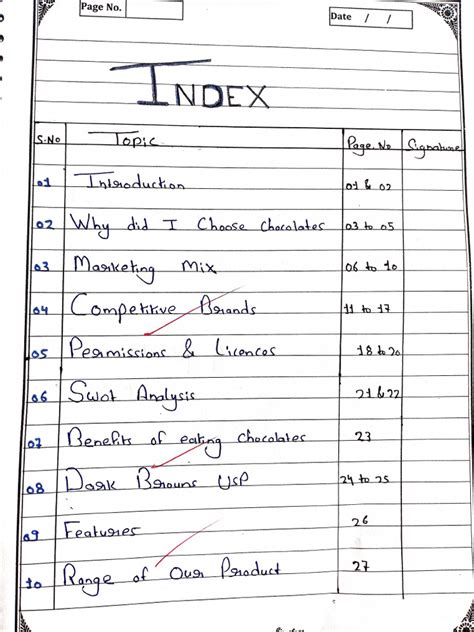 Page No.
Date / /
INDEX
S.No Topic Page. No Signature
01 Introduction 01 & 02
02 Why did I Choose Chocolates 03 to 05
03 Marketing Mix 06 to 10
04 Competitive Brands 11 to 17
05 Permissions & Licences 18 to 20
06 Swot Analysis 21 & 22
07 Benefits of eating Chocolates 23
08 Dark Browns USP 24 to 25
09 Features 26
10 Range of Our Product 27